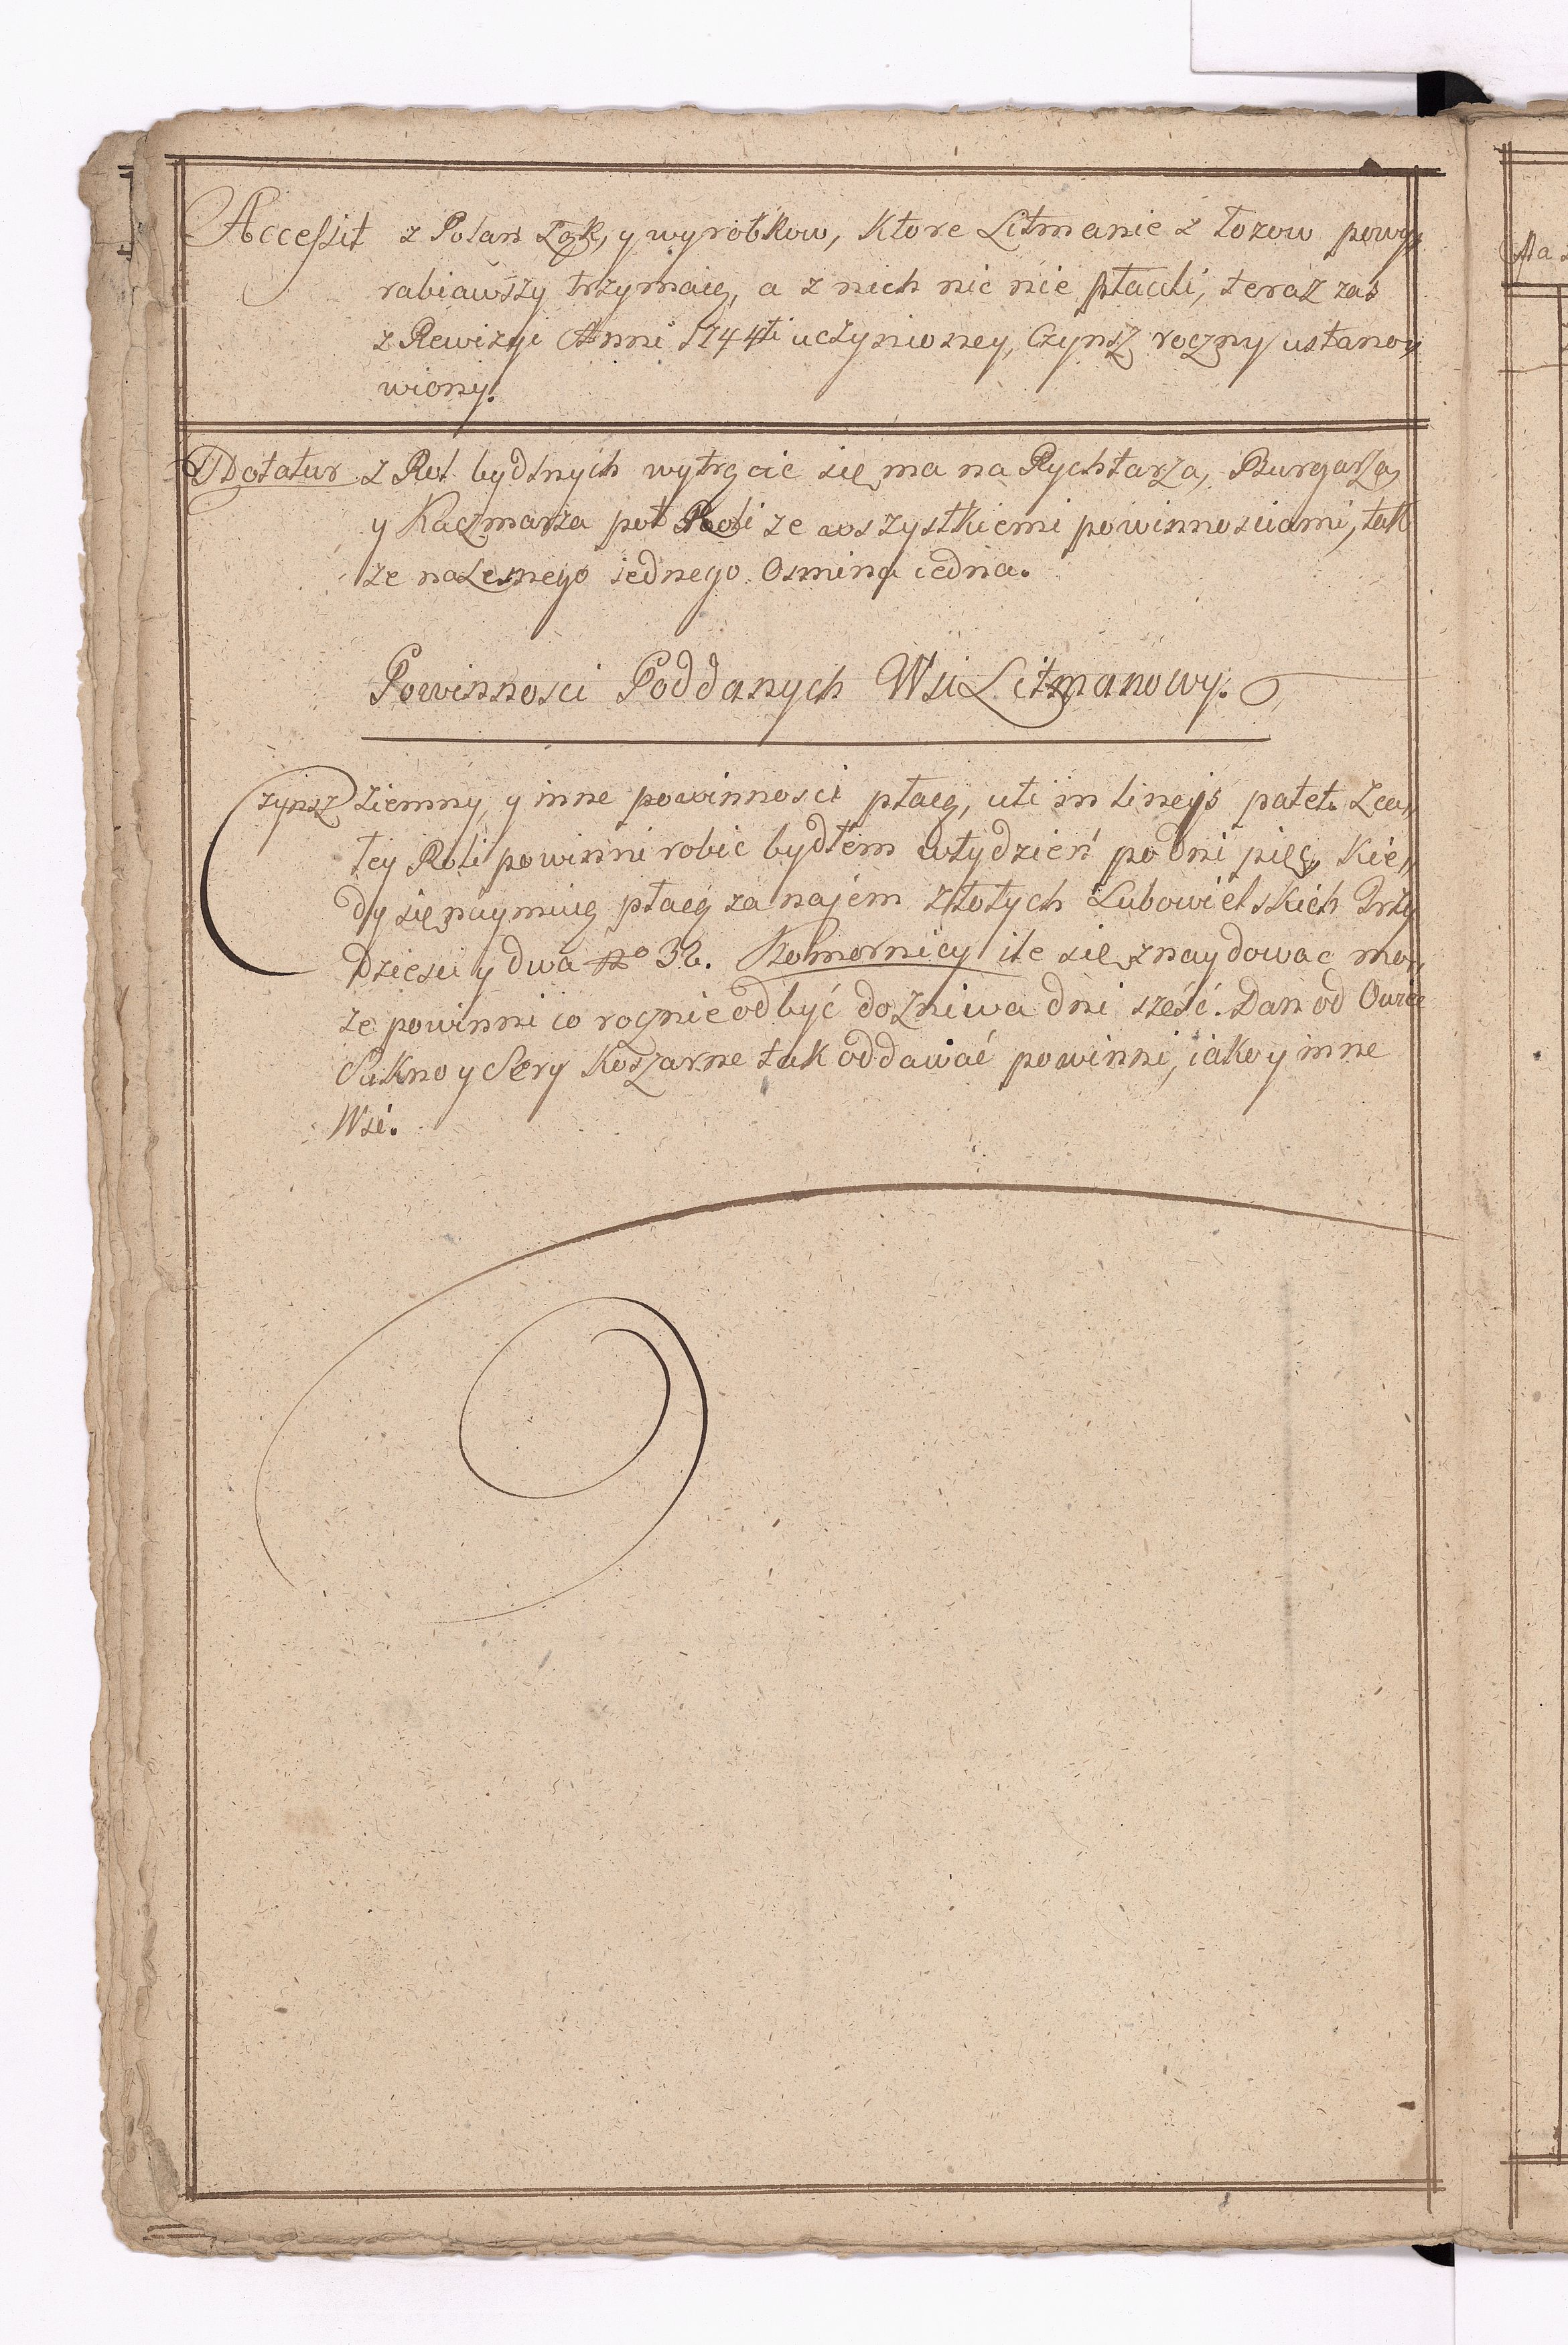 Accessit z Polan Łąk, y wyrobkow, ktore Litmanie z łozow powy,,
rabiawszy trzymaią, a z nich nic nie płacili, teraz zas
z Rewizyi Anni 1744ti uczynioney, Czynsz roczny ustano,,
wiony.
Notatur z Rol bydlnych wytrącic się ma na Rychtarza, Burgarza,
y Kaczmarza poł Roli ze wszystkiemi powinnosciami, tak
ze nalesnego jednego Osmina iedna.
Powinnosci Poddanych Wsi Litmanowy.
Czynsz ziemny, y inne powinnosci płacą, uti in lineys patet. Z ca,,
łey Roli powinni robic bydłem wtydzień po dni pięc, Kie,,
dy się naymuią płacą za najem złotych Lubowielskich Trzy
dziesci y dwa no 32. Komornicy ile się znaydowac mo,,
ze powinni co rocznie odbyć do zniwa dni sześć. Dan od Owiec
Sukno y Sery Koszarne tak oddawać powinni, iako y inne
Wsi.